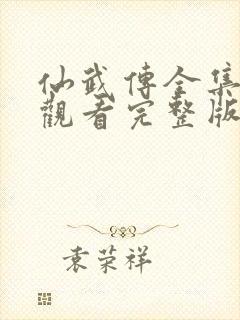 仙武傳全集
觀看完整版
袁荣祥